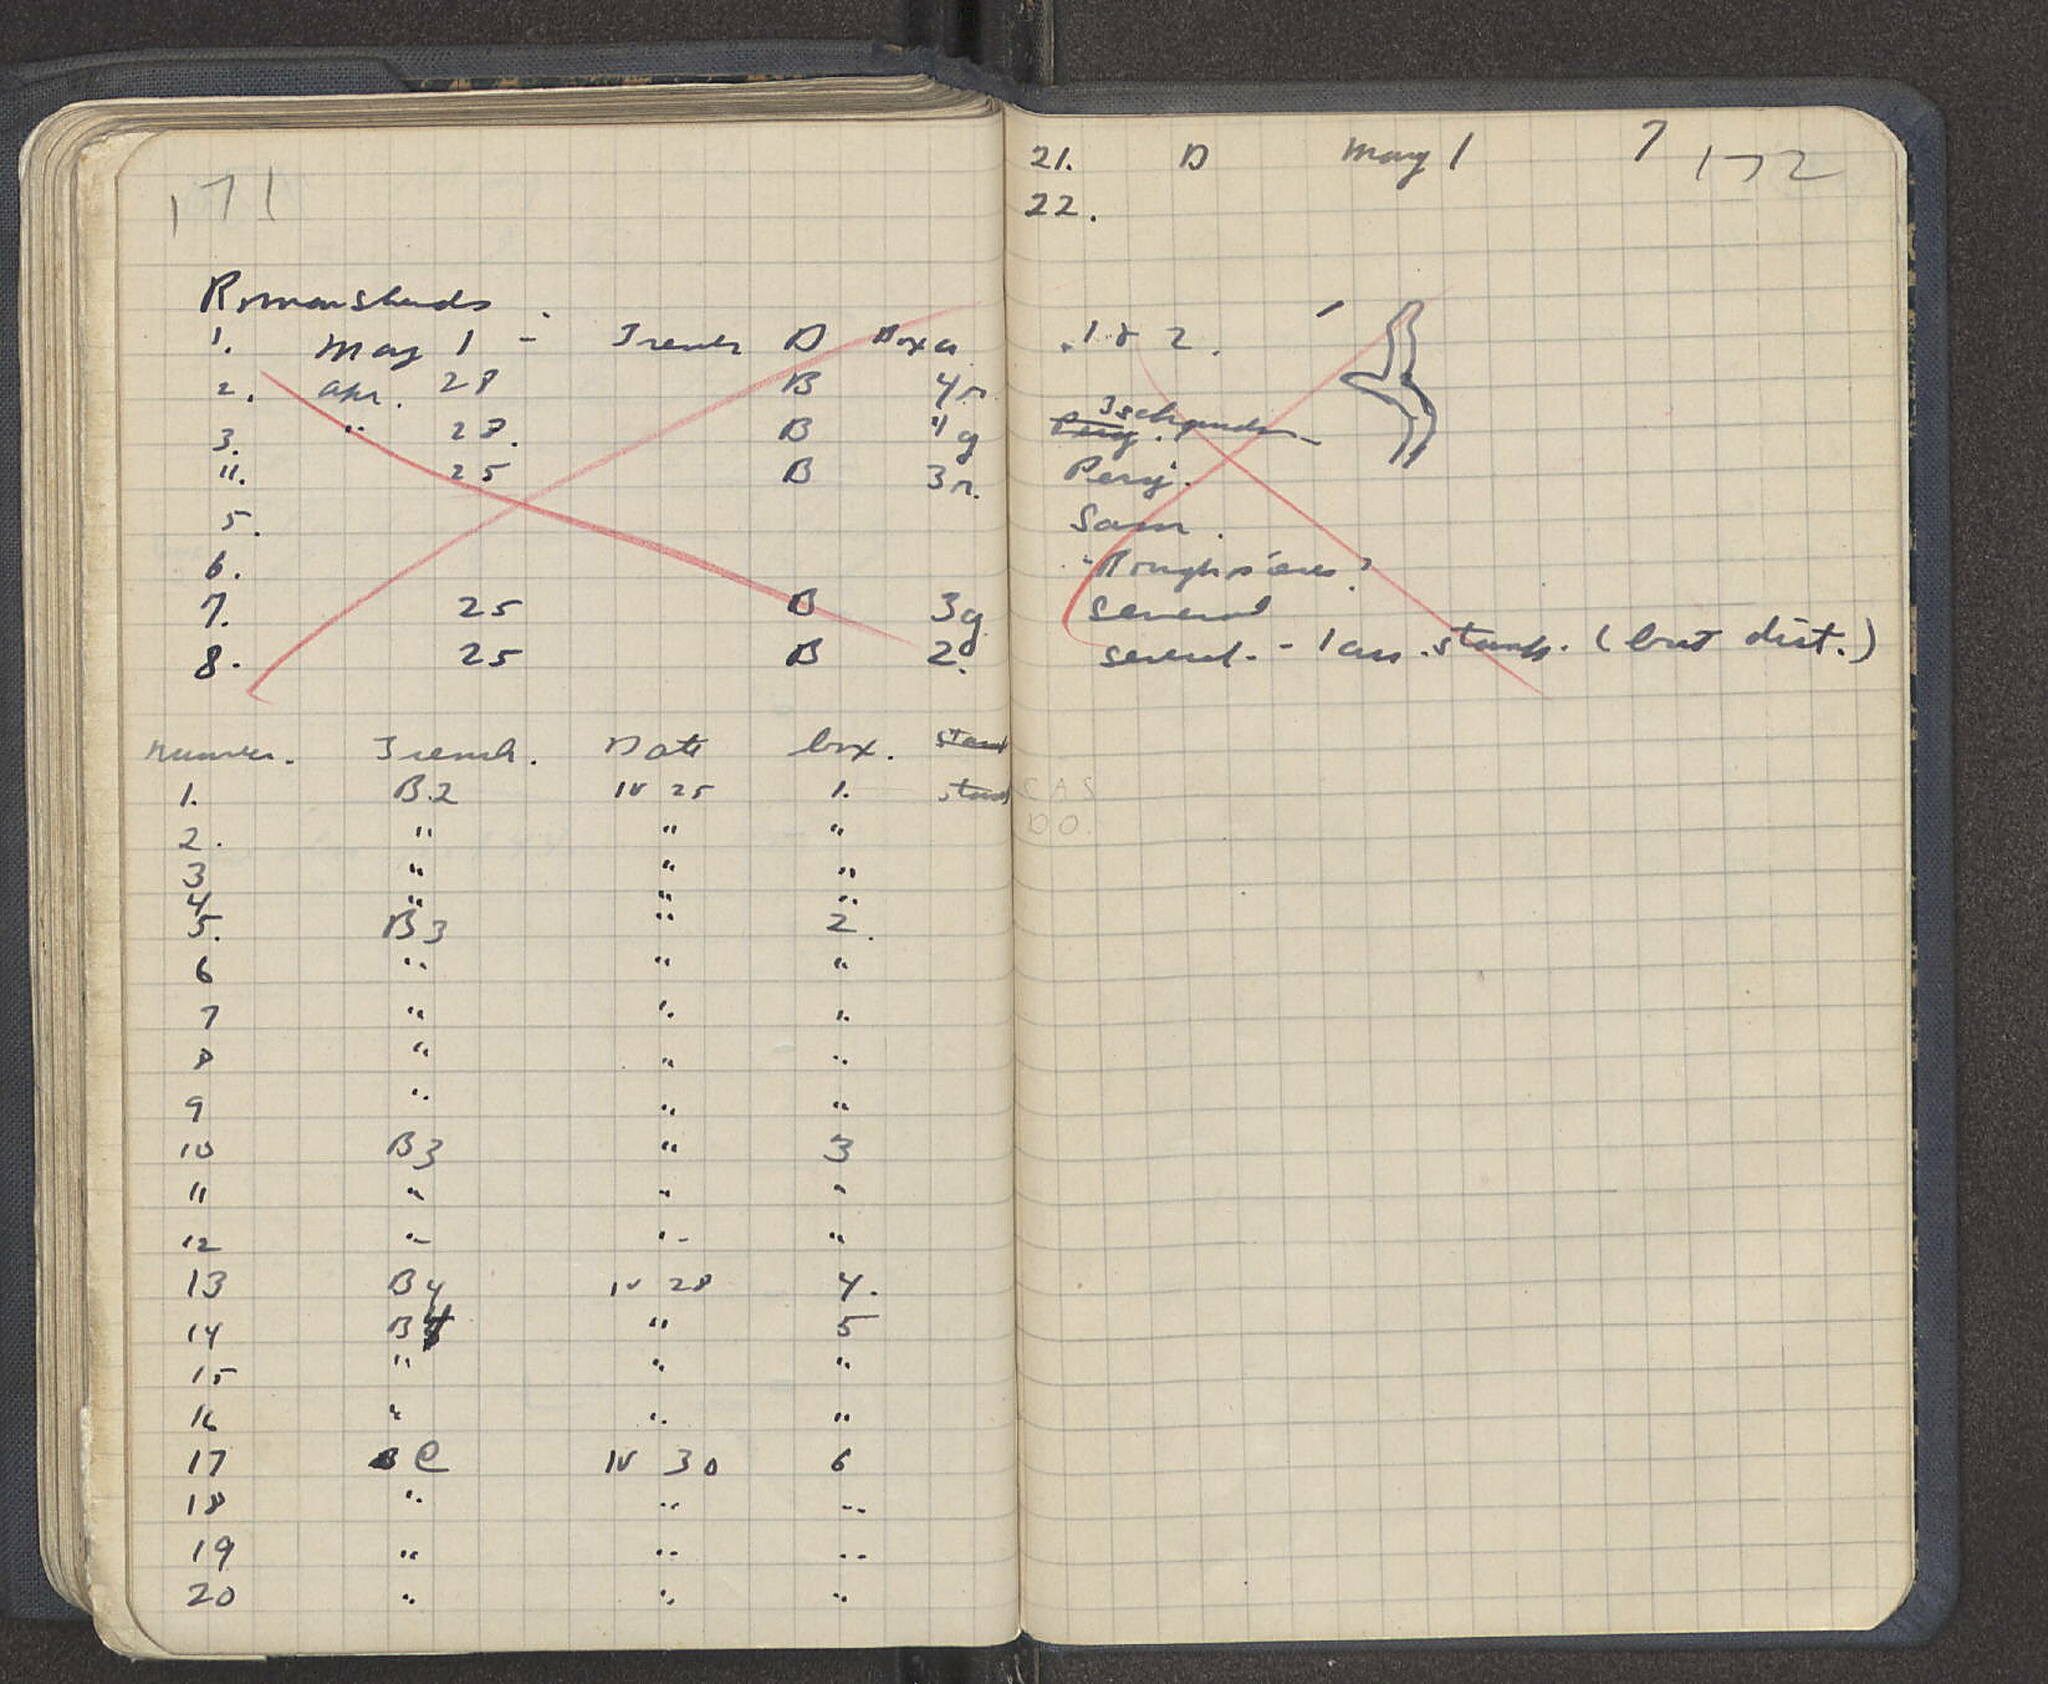 171
Roman sherds
1. May 1 - Trench D Box a
2. apr. 28 B 4 r.
3. " 28. B 4 g
4. 25 B 3 r.
5.
6.
7. 25 B 3g
8. 25 B 2.
Number. Trench. Date box. stam
1. B.2 IV 25 1. stam
2. " " "
3 " " "
4 " " "
5. B3 " 2.
6 " " "
7 " " "
8 " " "
9 " " "
10 B3 " 3
11 " " "
12 " " "
13 B4 IV 28 4.
14 B4 " 5
15 " " "
16 " " "
17 C IV 30 6
18 " " "
19 " " "
20 " " "
21. D May 1 7 172
22.
1 & 2.
Perg.
Perg.
Sam.
several
several - 1 (but dist.)
CAS
DO.